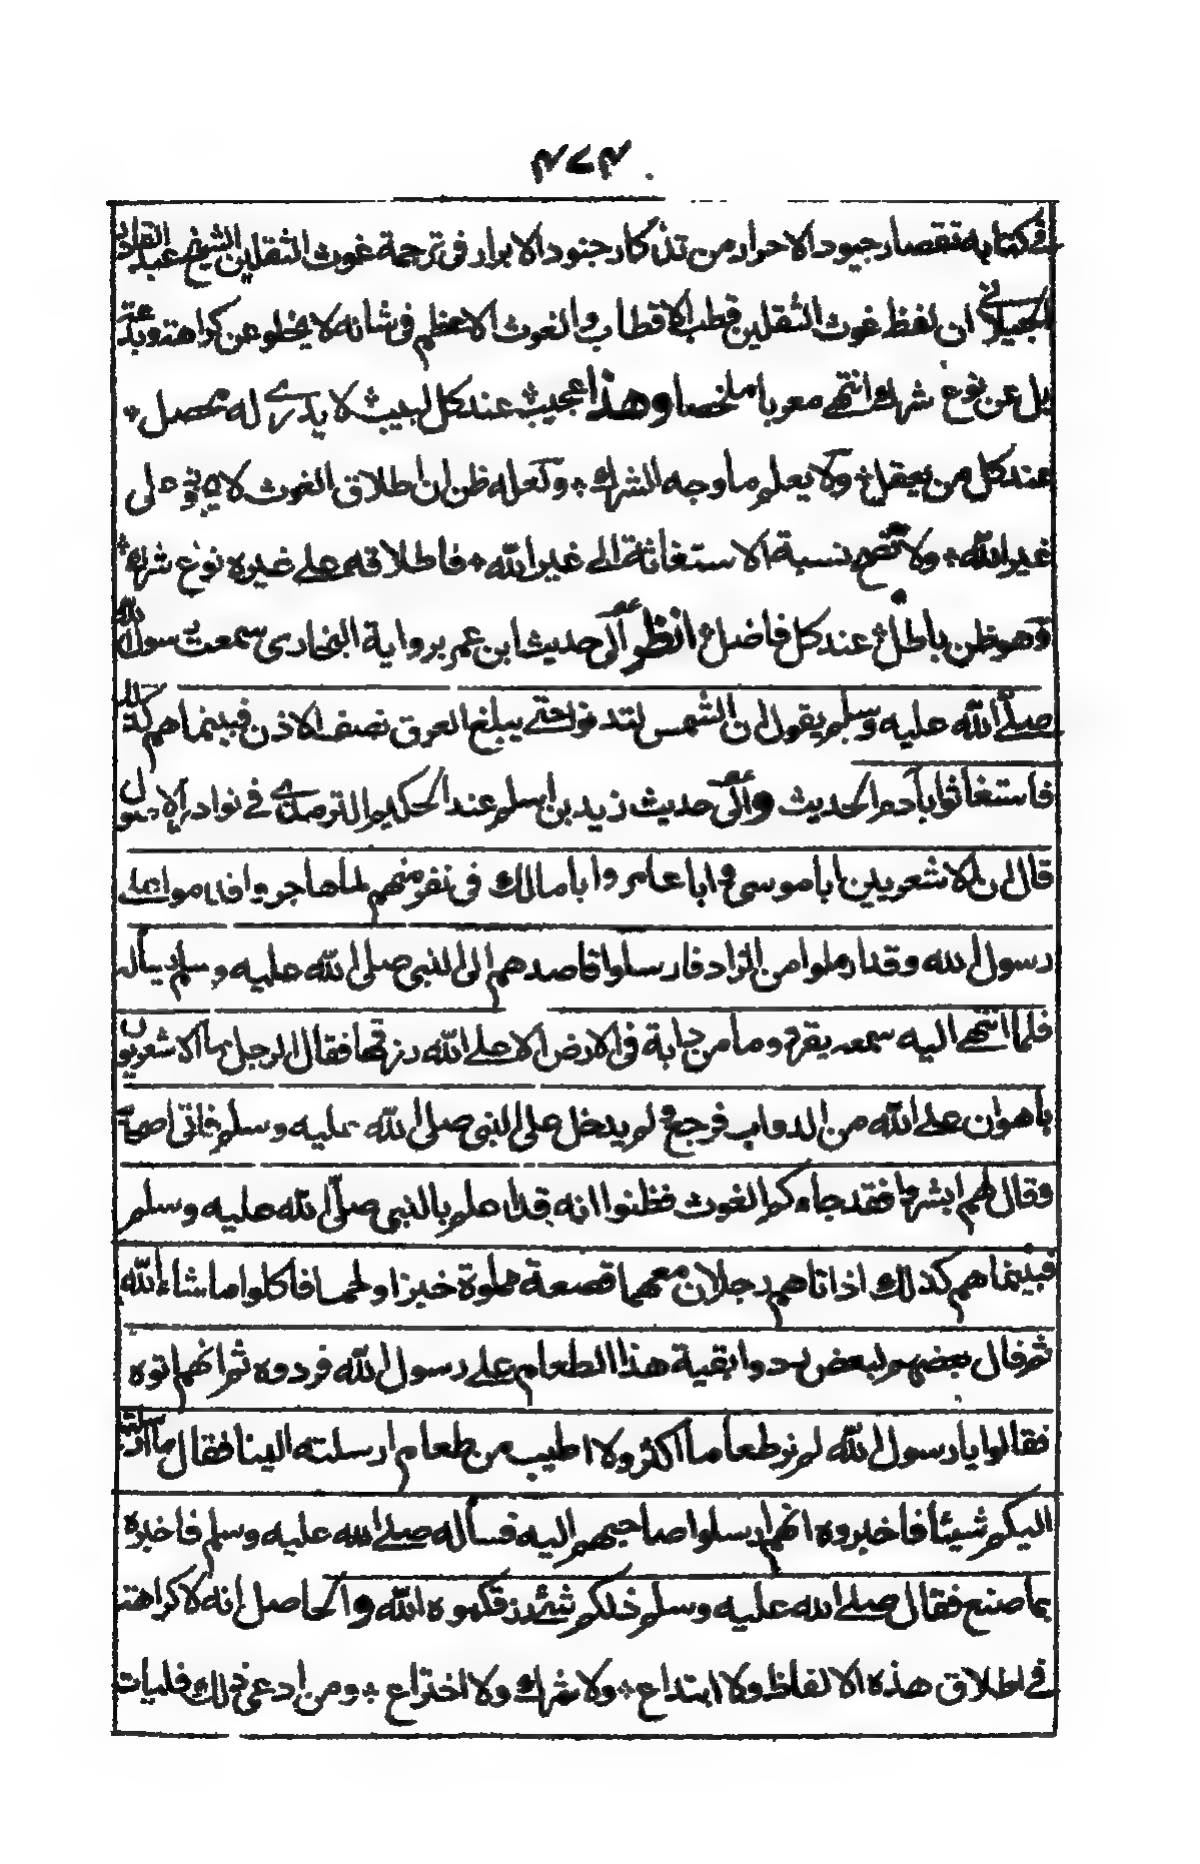 ٣٧٣
في كتابه تقصار جيود الاحرار من تذكار جنود الابرار في ترجمة غوث الثقلين الشيخ عبد القادر
الجيلاني ان لفظ غوث الثقلين وقطب الاقطاب والغوث الاعظم في شانه لا يخلو عن كراهته وبدعته
بل عن نوع شرك انتهى معربا ملخصا وهذا عجيب عند كل لبيب لا يدرى له محصل
عند كل من يعقل ولا يعلم ما وجه الشرك ولعله ظن ان اطلاق الغوث لا يجوز على
غير الله ولا تصح نسبة الاستغاثة الى غير الله فاطلاقه على غيره نوع شرك
وهو ظن باطل عند كل فاضل انظر الى حديث ابن عمر برواية البخارى سمعت رسول الله
صلى الله عليه وسلم يقول ان الشمس لتدنو حتى يبلغ العرق نصف الاذن فبينما هم كذلك
فاستغاثوا بآدم الحديث والى حديث زيد بن اسلم عند الحكيم الترمذى في نوادر الاصول
قال ان الاشعريين ابا موسى وابا عامر وابا مالك في نفر منهم لما هاجروا قدموا على
رسول الله وقد ارملوا من الزاد فارسلوا قاصدهم الى النبى صلى الله عليه وسلم يسأله
فلما انتهى اليه سمعه يقرء وما من دابة في الارض الا على الله رزقها فقال الرجل ما الاشعريون
باهون على الله من الدواب فرجع ولم يدخل على النبى صلى الله عليه وسلم فاتى اصحابه
وقال لهم ابشروا فقد جاءكم الغوث فظنوا انه قد اعلم بالنبى صلى الله عليه وسلم
فبينما هم كذلك اذ اتاهم رجلان معهما قصعة مملوة خبزا ولحما فاكلوا ما شاء الله
ثم قال بعضهم لبعض ردوا بقية هذا الطعام على رسول الله فردوه ثم انهم اتوه
فقالوا يا رسول الله لم نر طعاما اكثر ولا اطيب من طعام ارسلته الينا فقال ما ارسلت
اليكم شيئا فاخبروه انهم ارسلوا صاحبهم اليه فسأله صلى الله عليه وسلم فاخبره
بما صنع فقال صلى الله عليه وسلم ذلكم شئ رزقكموه الله والحاصل انه لا كراهته
في اطلاق هذه الالفاظ ولا ابتداع ولا شرك ولا اختراع ومن ادعى ذلك فليات